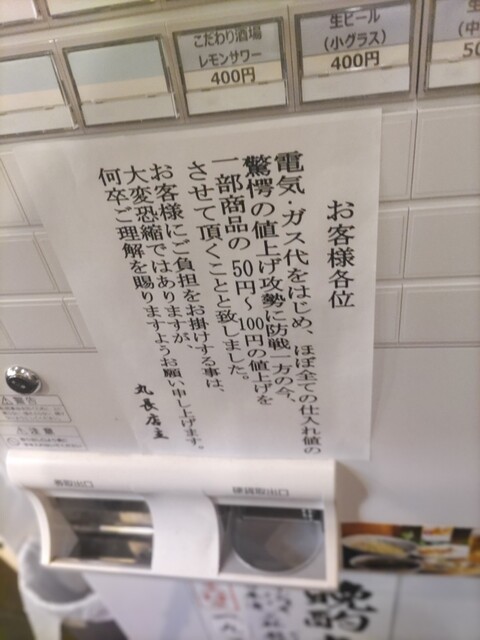 こだわり酒場
レモンサワー
400円
生ビール
(小グラス)
400円
お客様各位
電気・ガス代をはじめ、ほぼ全ての仕入れ値の
驚愕の値上げ攻勢に防戦一方の今、
一部商品の50円〜100円の値上げを
させて頂くことと致しました。
お客様にご負担をお掛けする事は、
大変恐縮ではありますが、
何卒ご理解を賜りますようお願い申し上げます。
丸長店主
警告
注意
硬貨取出口
晩酌